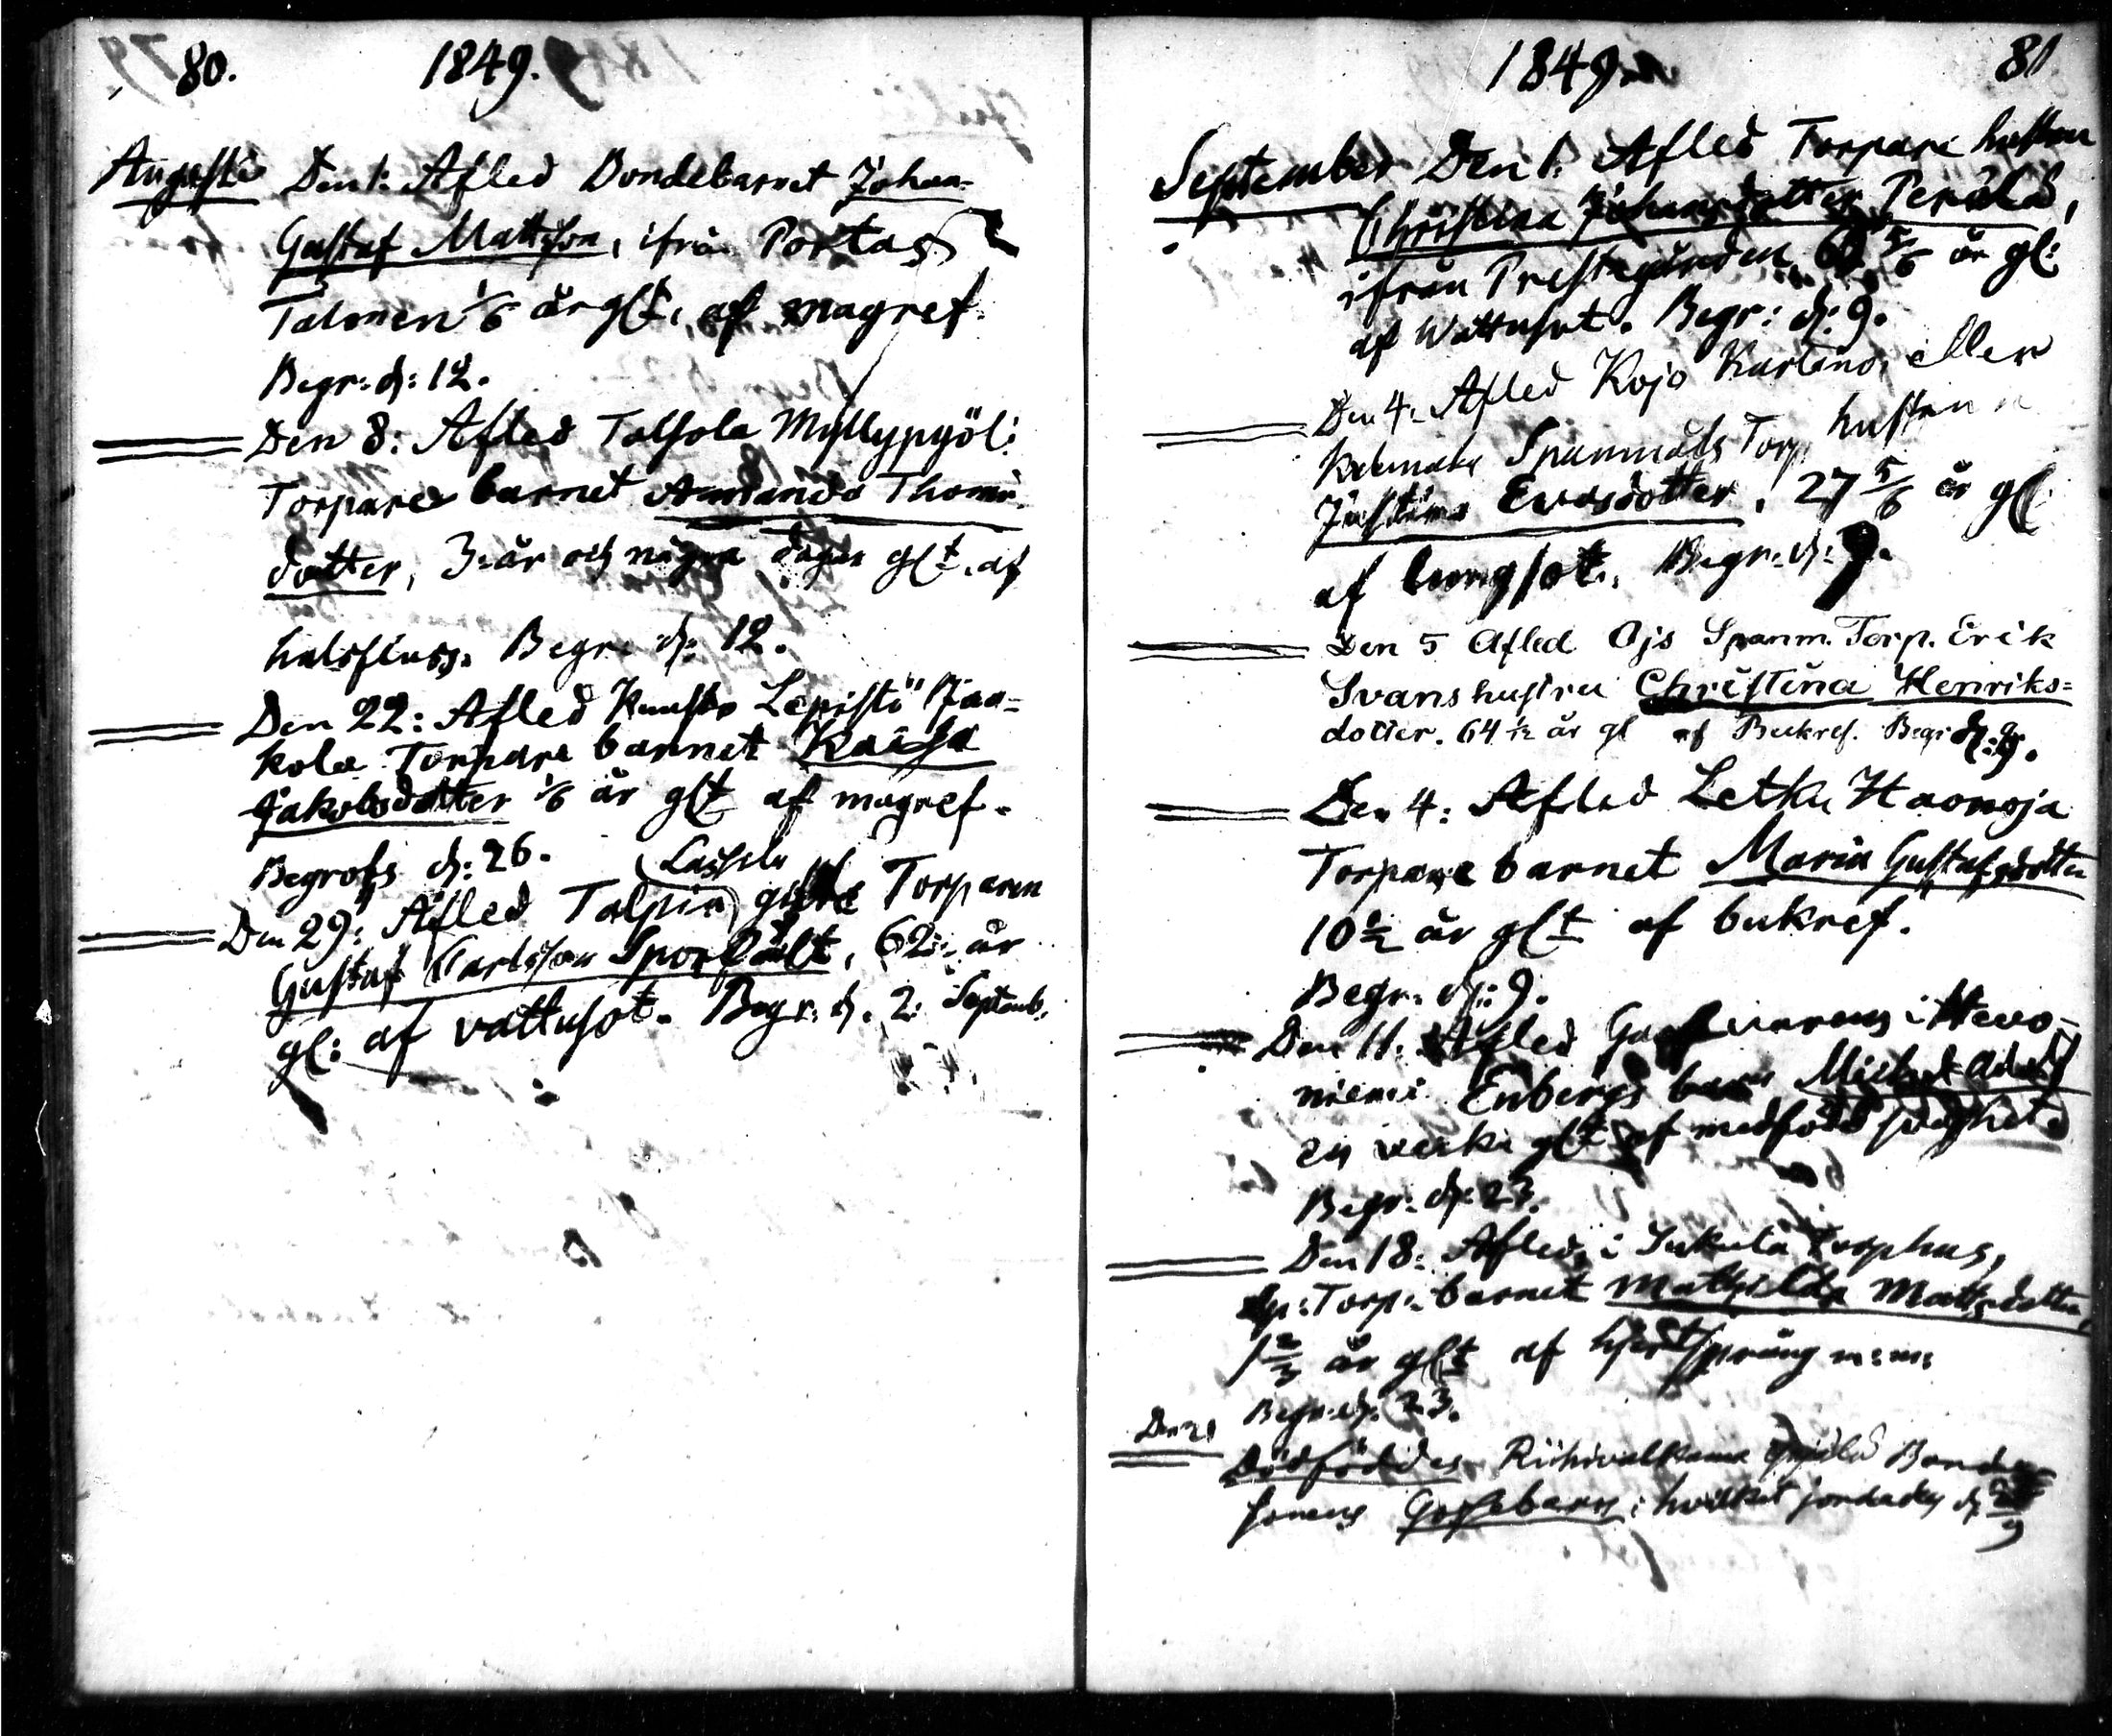 80. 1849.
Augusti Den 1: Afled Bondebarnet Johan
Gustaf Mattsson, ifrån Portas
Talonen 1/6 år glt. af magref.
Begr: d: 12.
Den 8: Afled Talsola Myllypyöl:
Torpare barnet Amanda Thoma
dotter, 3: år och några dagar glt. af
halsfluss. Begr. d: 12.
Den 22: Afled Lepistö Jaa-
kola Torpare barnet Kaisa
Jakobsdotter 1/6 år glt af magref.
Begrofs d: 26.
Laisela
Den 29: Afled Talpia gifte Torparen
Gustaf Carlsson, 62: år
gl: af vattusot. Begr: d. 2: Septemb.
1849. 81
September Den 1. Afled Torpare hustrun
Christina Johansdotter Perälä,
ifrån Prestegården 5/6 år gl:
af Wattusot. Begr: d: 9.
Den 4. Afled Kojo eller
Spanmåls Torp. hustrun
Justina Evasdotter, 27 5/6 år gl
af lungsot. Begr. d: 9.
Den 5 Afled Ojs Spanm. Torp. Erik
Svans hustru Christina Henriks=
dotter. 64 1/2 år gl af Bukref. Begr d: 9.
Den 4: Afled Letku Haonoja
Torpare barnet Maria Gustafsdotter
10 1/2 år glt af bukref.
Begr. d: 9.
Den 11. Afled i Hevo-
niemi Enbergs barn Michel Adolf
en vecka glt af medfödd svaghet
Begr: d: 23.
Den 18: Afled, i Sukula Torphus,
Sp: Torp: barnet Mathilda Mattsdotter,
1 2/3 år glt af hjertsprång m:m:
Begr: d: 23.
Den 21
Dödföddes Riihivalkama Bonde
sonens Gossebarn: hvilket jordades d.